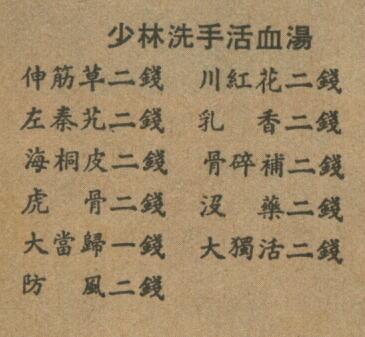 少林洗手活血湯
伸筋草二錢 川紅花二錢
左秦艽二錢 乳香二錢
海桐皮二錢 骨碎補二錢
虎骨二錢 沒藥二錢
大當歸一錢 大獨活二錢
防風二錢